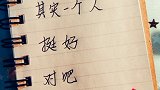 其实一个人
挺好
对吧